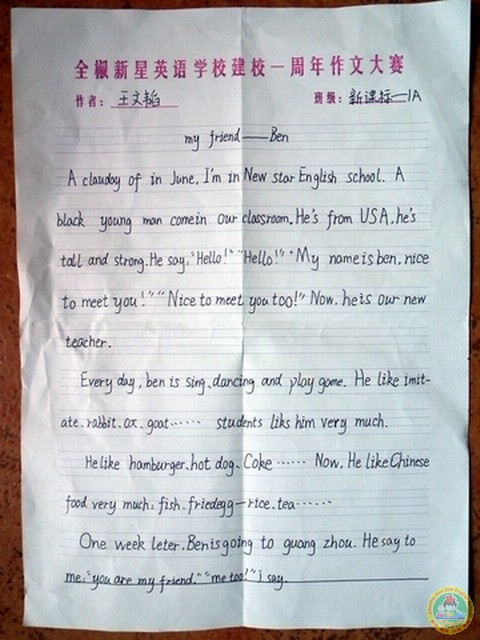 全椒新星英语学校建校一周年作文大赛
作者：王文韬 班级：新课标一1A
my friend——Ben
A clauday of in June, I'm in New star English school. A
black young man come in our classroom. He's from USA, he's
tall and strong. He say: "Hello!" "Hello!" "My name is ben, nice
to meet you!" "Nice to meet you too!" Now, he is our new
teacher.
Every day, ben is sing, dancing and play game. He like imit-
ate. rabbit. ox. goat…… students liks him very much.
He like hamburger. hot dog. Coke …… Now, He like Chinese
food very much: fish. friedegg—rice. tea……
One week leter. Ben is going to guang zhou. He say to
me: "you are my friend." "me too!" i say.